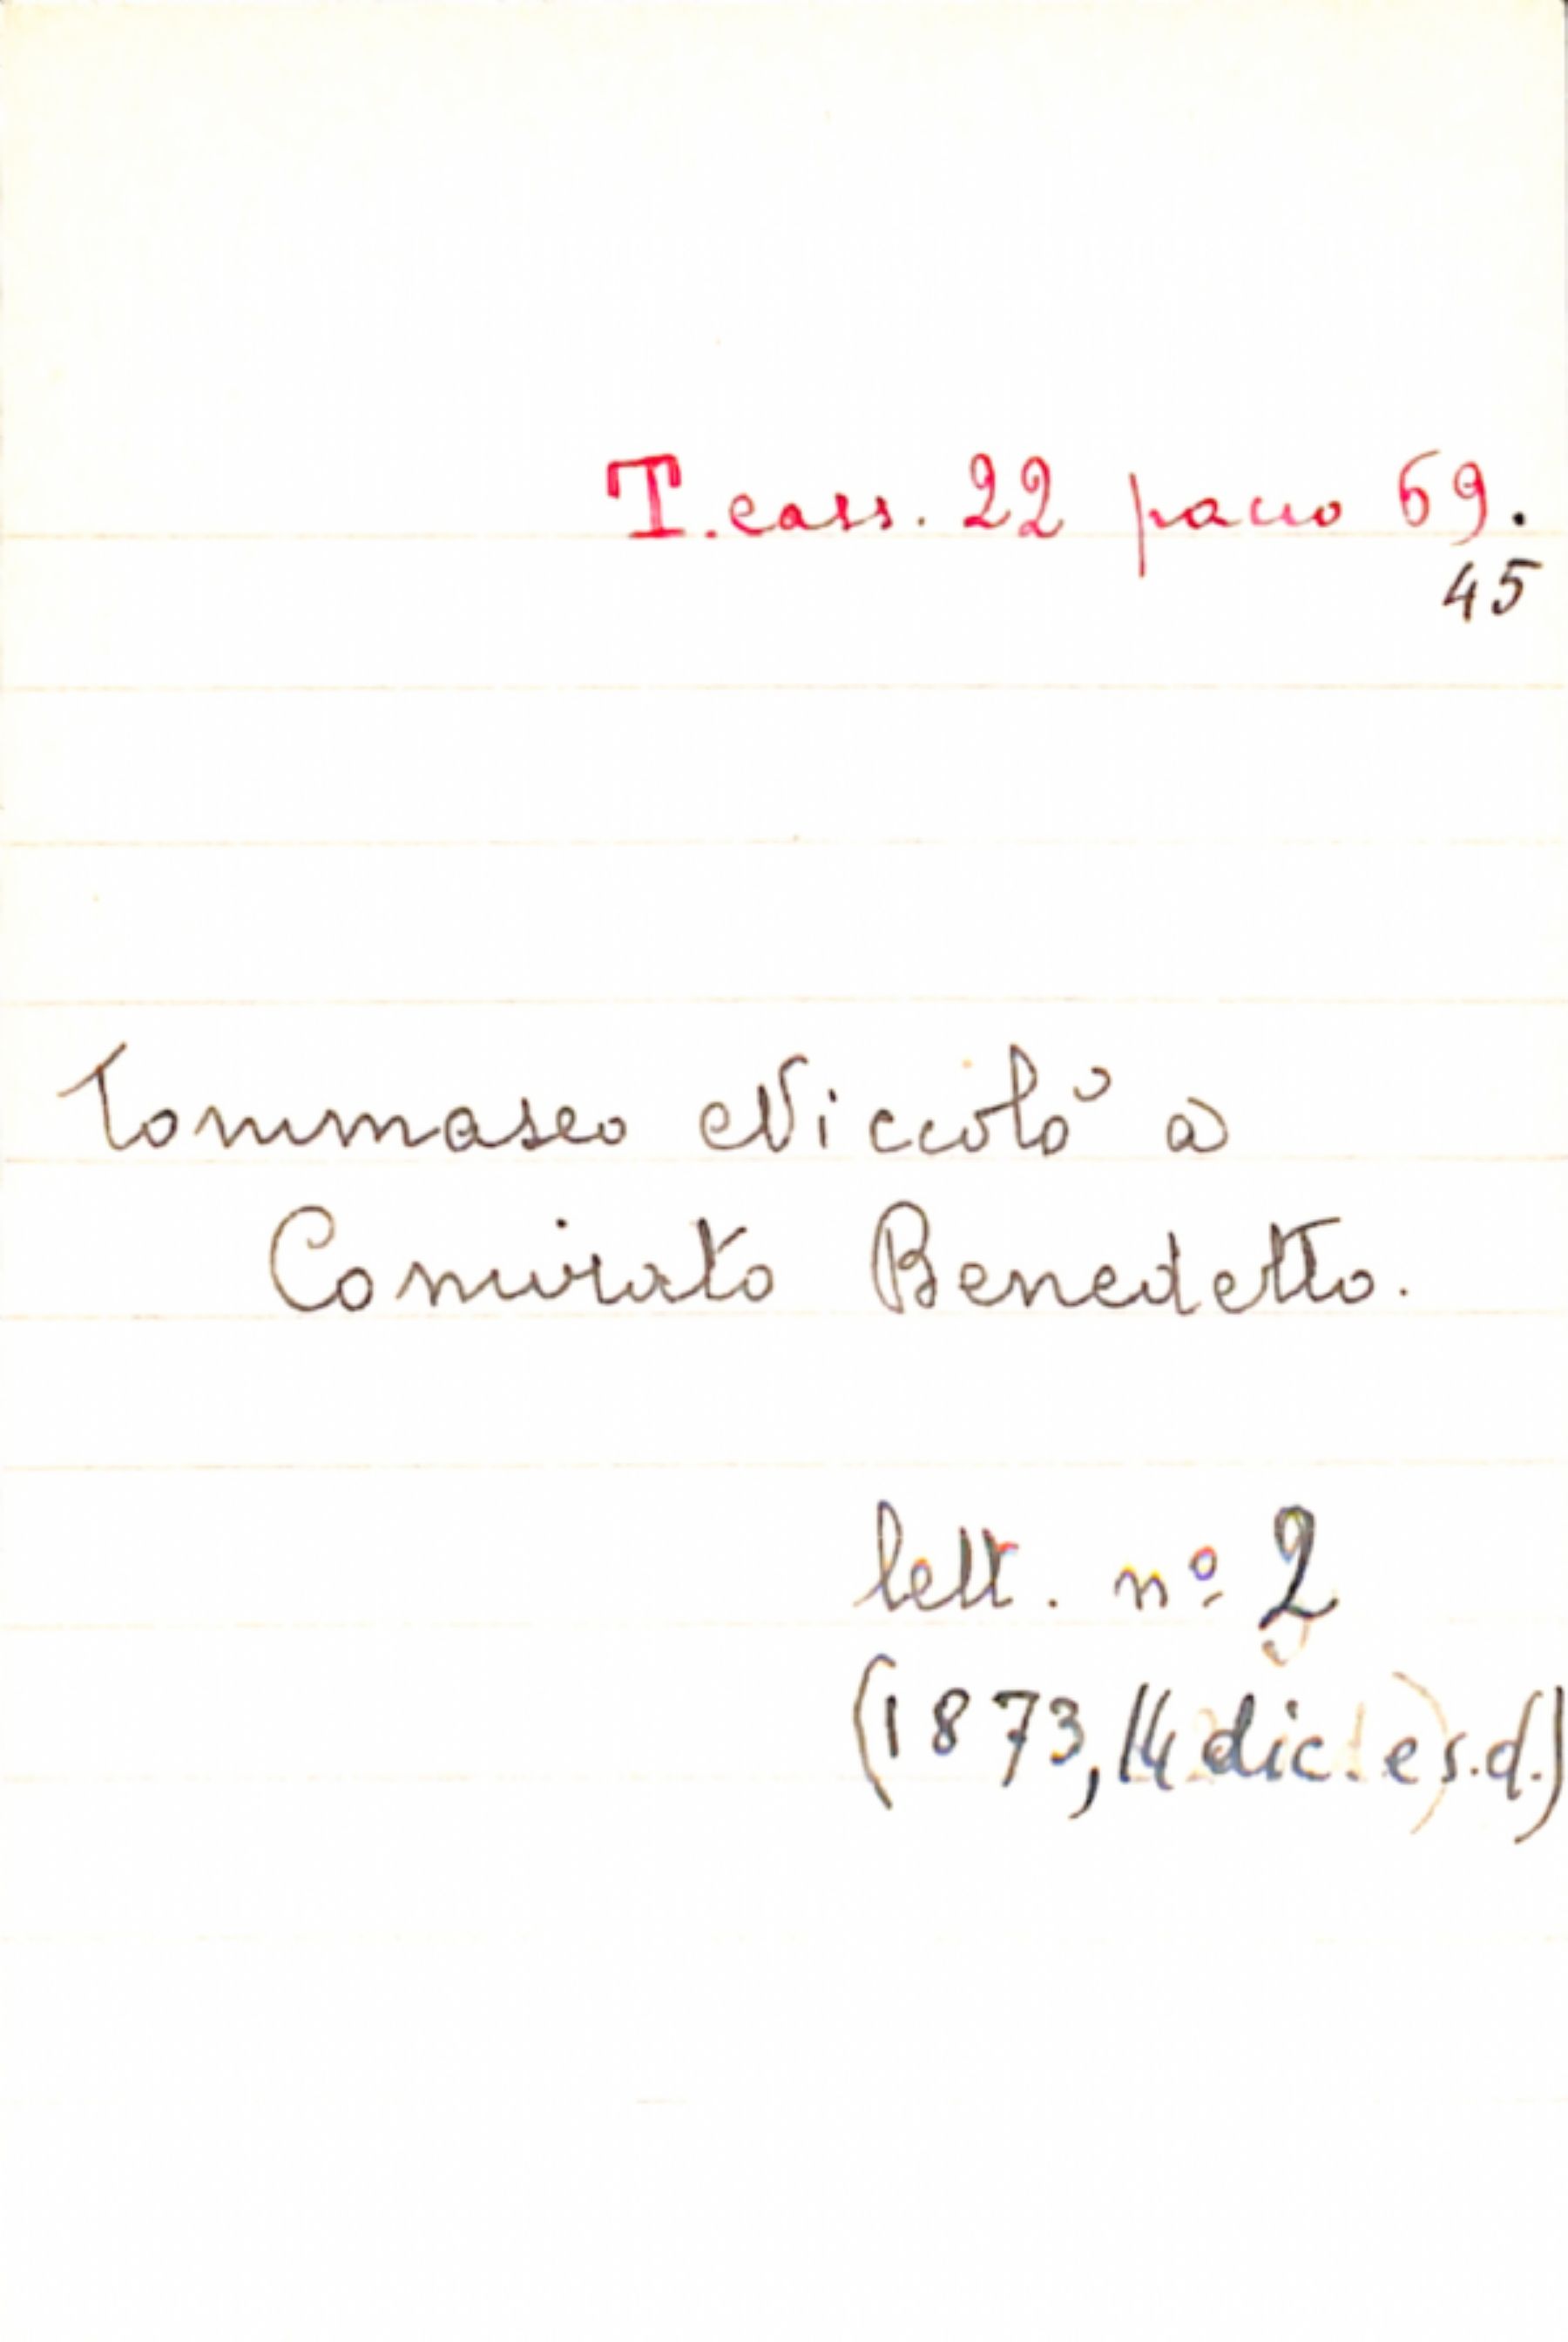 T. cass. 22 pacco 69.
45
Tommaseo Niccolò a
Comirato Benedetto.
lett. nº 2
(1873, 14 dic. e s.d.)